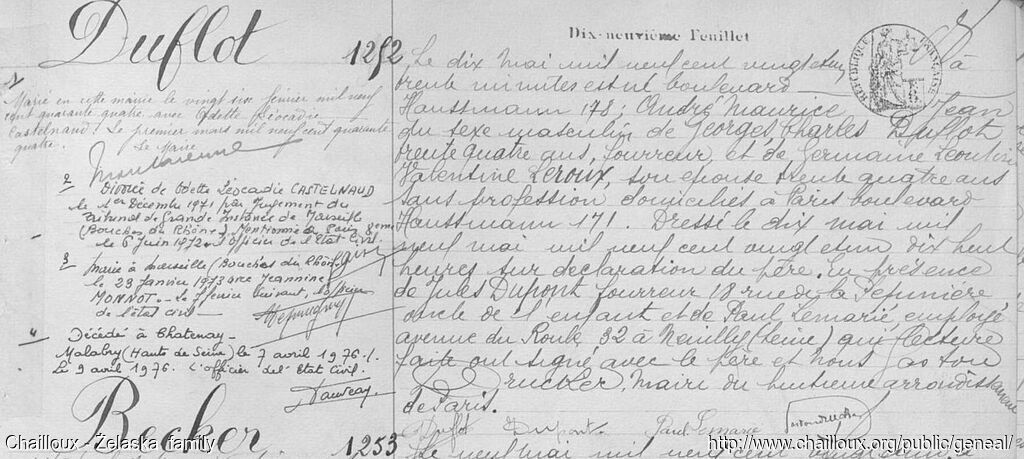 Dix-neuvième Feuillet
Duflot
1252
RÉPUBLIQUE FRANÇAISE
1
Marié en cette mairie le vingt six février mil neuf
cent quarante quatre avec Odette Léocadie
Castelnaud. Le premier mars mil neuf cent quarante
quatre. Le Maire
2
Divorcé de Odette Léocadie CASTELNAUD
le 1er Décembre 1971 par Jugement du
Tribunal de Grande Instance de Marseille
(Bouches du Rhône). Mentionné à Paris 8em
le 6 Juin 1972. L'officier de l'Etat Civil.
3
Marié à Marseille (Bouches du Rhône)
le 23 Janvier 1973 avec Jeannine
MONNOT.
de l'état civil
4
Décédé à Chatenay-
Malabry (Hauts de Seine) le 7 avril 1976.
Le 9 avril 1976. L'officier de l'Etat Civil.
Le dix mai mil neuf cent vingt et un à
trente minutes est né boulevard
Haussmann 178: André Maurice Jean
du sexe masculin de Georges Charles Duflot
trente quatre ans, fourreur, et de Germaine Léontine
Valentine Leroux, son épouse trente quatre ans
sans profession domiciliés à Paris boulevard
Haussmann 171. Dressé le dix mai mil
neuf mai mil neuf cent vingt et un dix huit
heures sur déclaration du père. En présence
de Jules Dupont fourreur 18 rue de la Pépinière
oncle de l'enfant et de Paul Lemarié employé
avenue du Roule 32 à Neuilly (Seine) qui lecture
faite ont signé avec le père et nous
Maire du huitième arrondissement
de Paris.
Duflot Dupont Paul Lemarié
Becker
1253
Le neuf mai mil neuf cent vingt et un à
Chailloux - Żelaska family
http://www.chailloux.org/public/geneal/